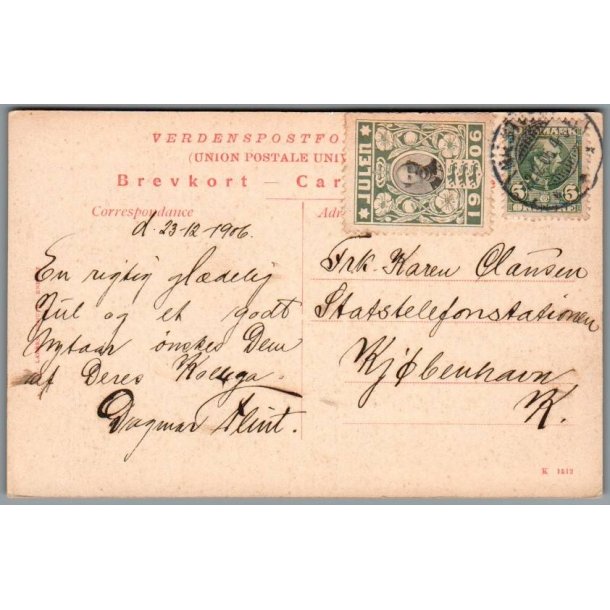 VERDENSPOSTFO
(UNION POSTALE UNIV
Brevkort — Car
Correspondance
Adr
JULEN
1906
MARK
5 5
d. 23-12-1906.
En rigtig glædelig
Jul og et godt
Nytaar ønskes Dem
af Deres Kollega.
Dagmar Flint.
Frk. Karen Clausen
Statstelefonstationen
Kjøbenhavn
K.
K 1512